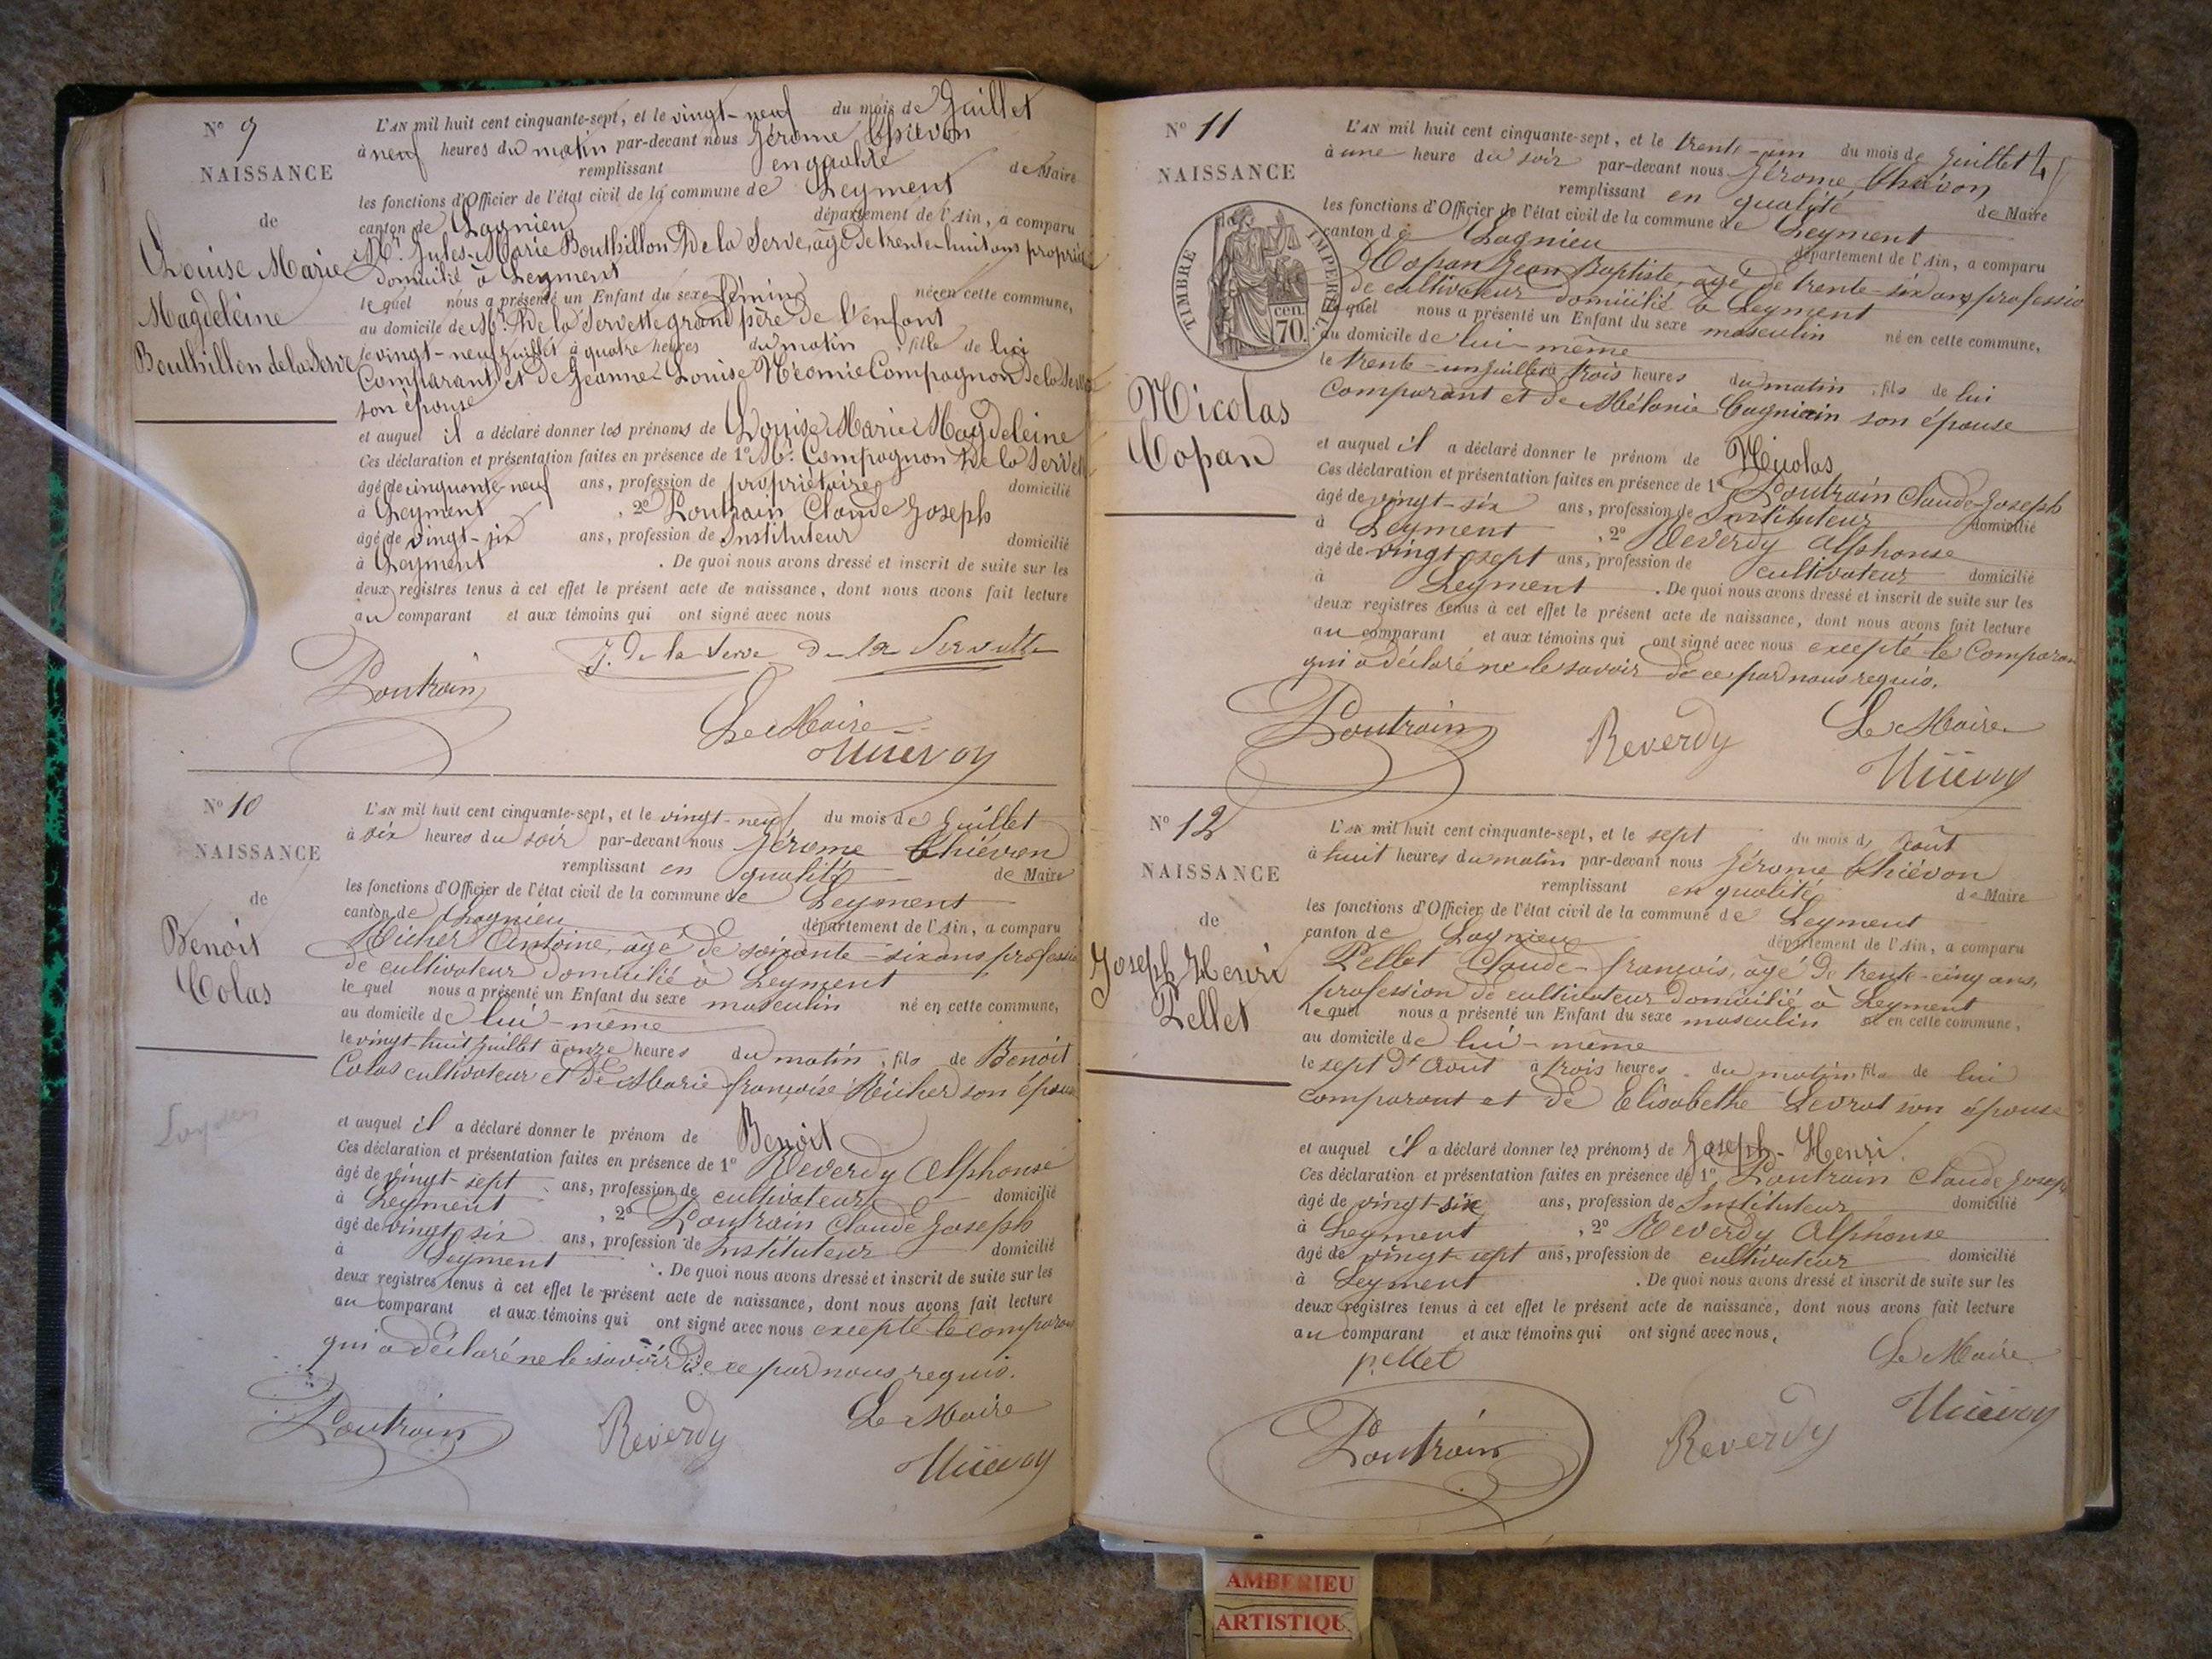 N° 9
NAISSANCE
de
Louise Marie
Magdeleine
Bouthillon de la Serve
L'AN mil huit cent cinquante-sept, et le vingt-neuf du mois de Juillet
à neuf heures du matin par-devant nous Jérome Thiévon
remplissant en qualité de Maire
les fonctions d'Officier de l'état civil de la commune de Leyment
canton de Lagnieu département de l'Ain, a comparu
Mr. Jules-Marie Bouthillon De la Serve, âgé de trente-huit ans propriét
domicilié à Leyment
lequel nous a présenté un Enfant du sexe féminin née en cette commune,
au domicile de Mr. De la Servette grand père De l'enfant
le vingt-neuf Juillet à quatre heures du matin, fille de lui
Comparant et de Jeanne-Louise Néomie Compagnon De la Servette
son épouse
et auquel il a déclaré donner les prénoms de Louise Marie Magdeleine
Ces déclaration et présentation faites en présence de 1° Mr. Compagnon De la Servett
âgé de cinquante-neuf ans, profession de propriétaire domicilié
à Leyment, 2° Poutrain Claude Joseph
âgé de vingt-six ans, profession de Instituteur domicilié
à Leyment. De quoi nous avons dressé et inscrit de suite sur les
deux registres tenus à cet effet le présent acte de naissance, dont nous avons fait lecture
au comparant et aux témoins qui ont signé avec nous
J. De la Serve De la Servette
Poutrain
Le Maire
N° 10
NAISSANCE
de
Benoit
Colas
L'AN mil huit cent cinquante-sept, et le vingt-neuf du mois de Juillet
à six heures du soir par-devant nous Jérome Thiévon
remplissant en qualité de Maire
les fonctions d'Officier de l'état civil de la commune de Leyment
canton de Lagnieu département de l'Ain, a comparu
Richer Antoine, âgé de soixante-six ans professio
de cultivateur domicilié à Leyment
lequel nous a présenté un Enfant du sexe masculin né en cette commune,
au domicile de lui-même
le vingt-huit Juillet à onze heures du matin, fils de Benoit
Colas cultivateur et De Marie françoise Richer son épouse
et auquel il a déclaré donner le prénom de Benoit
Ces déclaration et présentation faites en présence de 1° Reverdy Alphonse
âgé de vingt-sept ans, profession de cultivateur domicilié
à Leyment, 2° Poutrain Claude Joseph
âgé de vingt-six ans, profession de Instituteur domicilié
à Leyment. De quoi nous avons dressé et inscrit de suite sur les
deux registres tenus à cet effet le présent acte de naissance, dont nous avons fait lecture
au comparant et aux témoins qui ont signé avec nous excepté le comparant
qui a déclaré ne le savoir De ce par nous requis.
Poutrain Reverdy Le Maire
N° 11
NAISSANCE
TIMBRE IMPERIAL
70 cen.
Nicolas
Copan
L'AN mil huit cent cinquante-sept, et le trente-un du mois de Juillet
à une heure du soir par-devant nous Jérome Thiévon
remplissant en qualité de Maire
les fonctions d'Officier de l'état civil de la commune de Leyment
canton de Lagnieu département de l'Ain, a comparu
Copan Jean Baptiste, âgé de trente-six ans professio
de cultivateur domicilié à Leyment
lequel nous a présenté un Enfant du sexe masculin né en cette commune,
au domicile de lui-même
le trente-un Juillet à trois heures du matin, fils de lui
Comparant et de Mélanie Cagniain son épouse
et auquel il a déclaré donner le prénom de Nicolas
Ces déclaration et présentation faites en présence de 1° Poutrain Claude-Joseph
âgé de vingt-six ans, profession de Instituteur domicilié
à Leyment, 2° Reverdy Alphonse
âgé de vingt-sept ans, profession de cultivateur domicilié
à Leyment. De quoi nous avons dressé et inscrit de suite sur les
deux registres tenus à cet effet le présent acte de naissance, dont nous avons fait lecture
au comparant et aux témoins qui ont signé avec nous excepté le Comparan
qui a déclaré ne le savoir De ce par nous requis.
Poutrain Reverdy Le Maire
N° 12
NAISSANCE
de
Joseph Henri
Pellet
L'AN mil huit cent cinquante-sept, et le sept du mois d'Août
à huit heures du matin par-devant nous Jérome Thiévon
remplissant en qualité de Maire
les fonctions d'Officier de l'état civil de la commune de Leyment
canton de Lagnieu département de l'Ain, a comparu
Pellet Claude-françois, âgé De trente-cinq ans,
profession de cultivateur domicilié à Leyment
lequel nous a présenté un Enfant du sexe masculin né en cette commune,
au domicile de lui-même
le sept D'Août à trois heures du matin, fils de lui
comparant et de Elisabethe Levrat son épouse
et auquel il a déclaré donner les prénoms de Joseph-Henri.
Ces déclaration et présentation faites en présence de 1° Poutrain Claude Joseph
âgé de vingt-six ans, profession de Instituteur domicilié
à Leyment, 2° Reverdy Alphonse
âgé de vingt-sept ans, profession de cultivateur domicilié
à Leyment. De quoi nous avons dressé et inscrit de suite sur les
deux registres tenus à cet effet le présent acte de naissance, dont nous avons fait lecture
au comparant et aux témoins qui ont signé avec nous,
pellet Le Maire
Poutrain Reverdy
AMBERIEU
ARTISTIQU